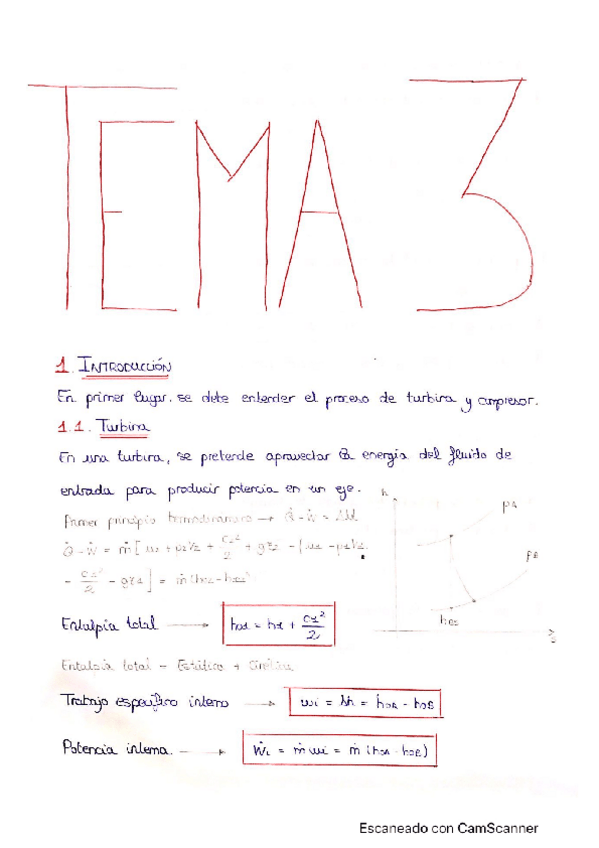 TEMA 3
1. INTRODUCCIÓN
En primer lugar. se debe entender el proceso de turbina y compresor.
1.1. Turbina
En una turbina, se pretende aprovechar la energía del fluido de
entrada para producir potencia en un eje.
h
PA
Primer principio termodinámica → Q̇ - Ẇ = ΔU
Q̇ - Ẇ = ṁ [ u₂ + p₂V₂ + c₂²/2 + gz₂ - (u₁ - p₁V₁
PB
- c₁²/2 - gz₁ ] = ṁ
h₀₂
s
Entalpía total → h₀₁ = h₁ + c₁²/2
Entalpía total = Estática + Cinética
Trabajo específico interno → wi = Δh = h₀A - h₀B
Potencia interna. → Ẇi = ṁ wi = ṁ (h₀A - h₀B)
Escaneado con CamScanner